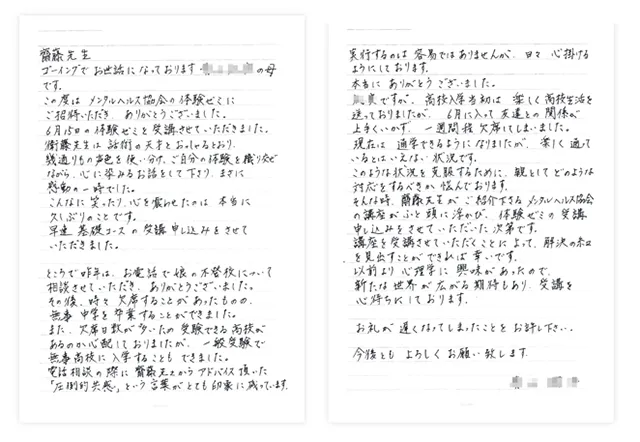 齋藤先生
ゴーイングでお世話になっております の母
です。
この度は メンタルヘルス協会の体験ゼミに
ご招待いただき、ありがとうございました。
6月15日の体験ゼミを受講させていただきました。
衛藤先生は 話術の天才とおっしゃるとおり、
幾通りもの声色を使い分け、ご自分の体験を織り交ぜ
ながら、心に染みるお話をして下さり、まさに
感動の一時でした。
こんなに笑ったり、心を震わせたのは 本当に
久しぶりのことです。
早速 基礎コースの受講申し込みをさせて
いただきました。
ところで昨年は、お電話で娘の不登校について
相談させていただき、ありがとうございました。
その後、時々欠席することがあったものの、
無事中学を卒業することができました。
また、欠席日数が多いため受験できる高校が
あるのか心配しておりましたが、一般受験で
無事高校に入学することもできました。
電話相談の際に齋藤先生からアドバイス頂いた
「圧倒的共感」という言葉がとても印象に残っています。
実行するのは容易ではありませんが、日々心掛ける
ようにしております。
本当に ありがとうございました。
ですが、高校入学当初は 楽しく高校生活を
送っておりましたが、6月に入って友達との関係が
上手くいかず、一週間程欠席してしまいました。
現在は 通学できるようになりましたが、楽しく通っ
ているとはいえない状況です。
このような状況を克服するために、親としてどのような
対応をするべきか悩んでおります。
そんな時、齋藤先生がご紹介下さるメンタルヘルス協会
の講座がふと頭に浮かび、体験ゼミの受講
申し込みをさせていただいた次第です。
講座を受講させていただくことによって、解決の糸口
を見出すことができれば幸いです。
以前より心理学に興味があったので、
新たな世界が広がる期待もあり、受講を
心待ちにしております。
お礼が遅くなってしまったことをお許し下さい。
今後とも よろしくお願い致します。